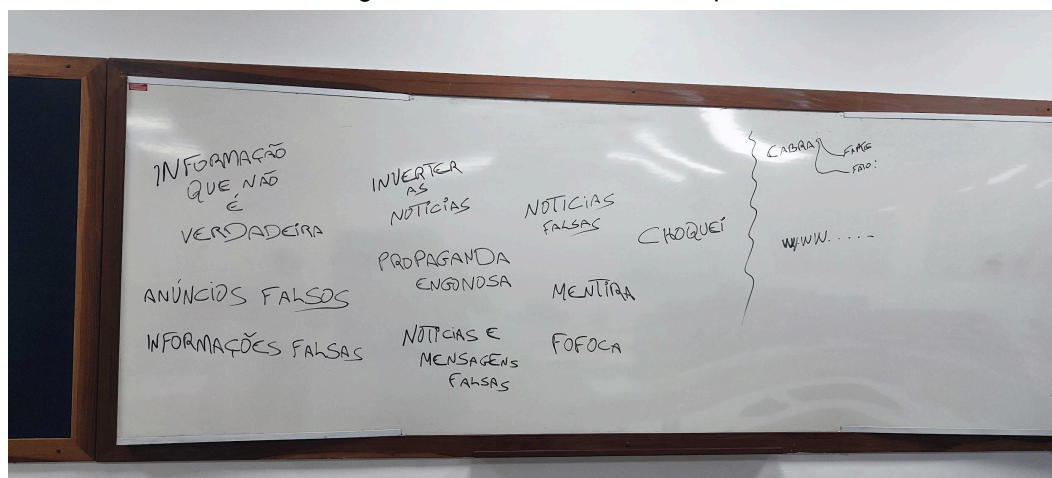 INFORMAÇÃO
QUE NÃO
É
VERDADEIRA
ANÚNCIOS FALSOS
INFORMAÇÕES FALSAS
INVERTER
AS
NOTÍCIAS
PROPAGANDA
ENGONOSA
NOTICIAS E
MENSAGENS
FALSAS
NOTICIAS
FALSAS
MENTIRA
FOFOCA
CHOQUEÍ
CABRA
FATO:
WWW.....